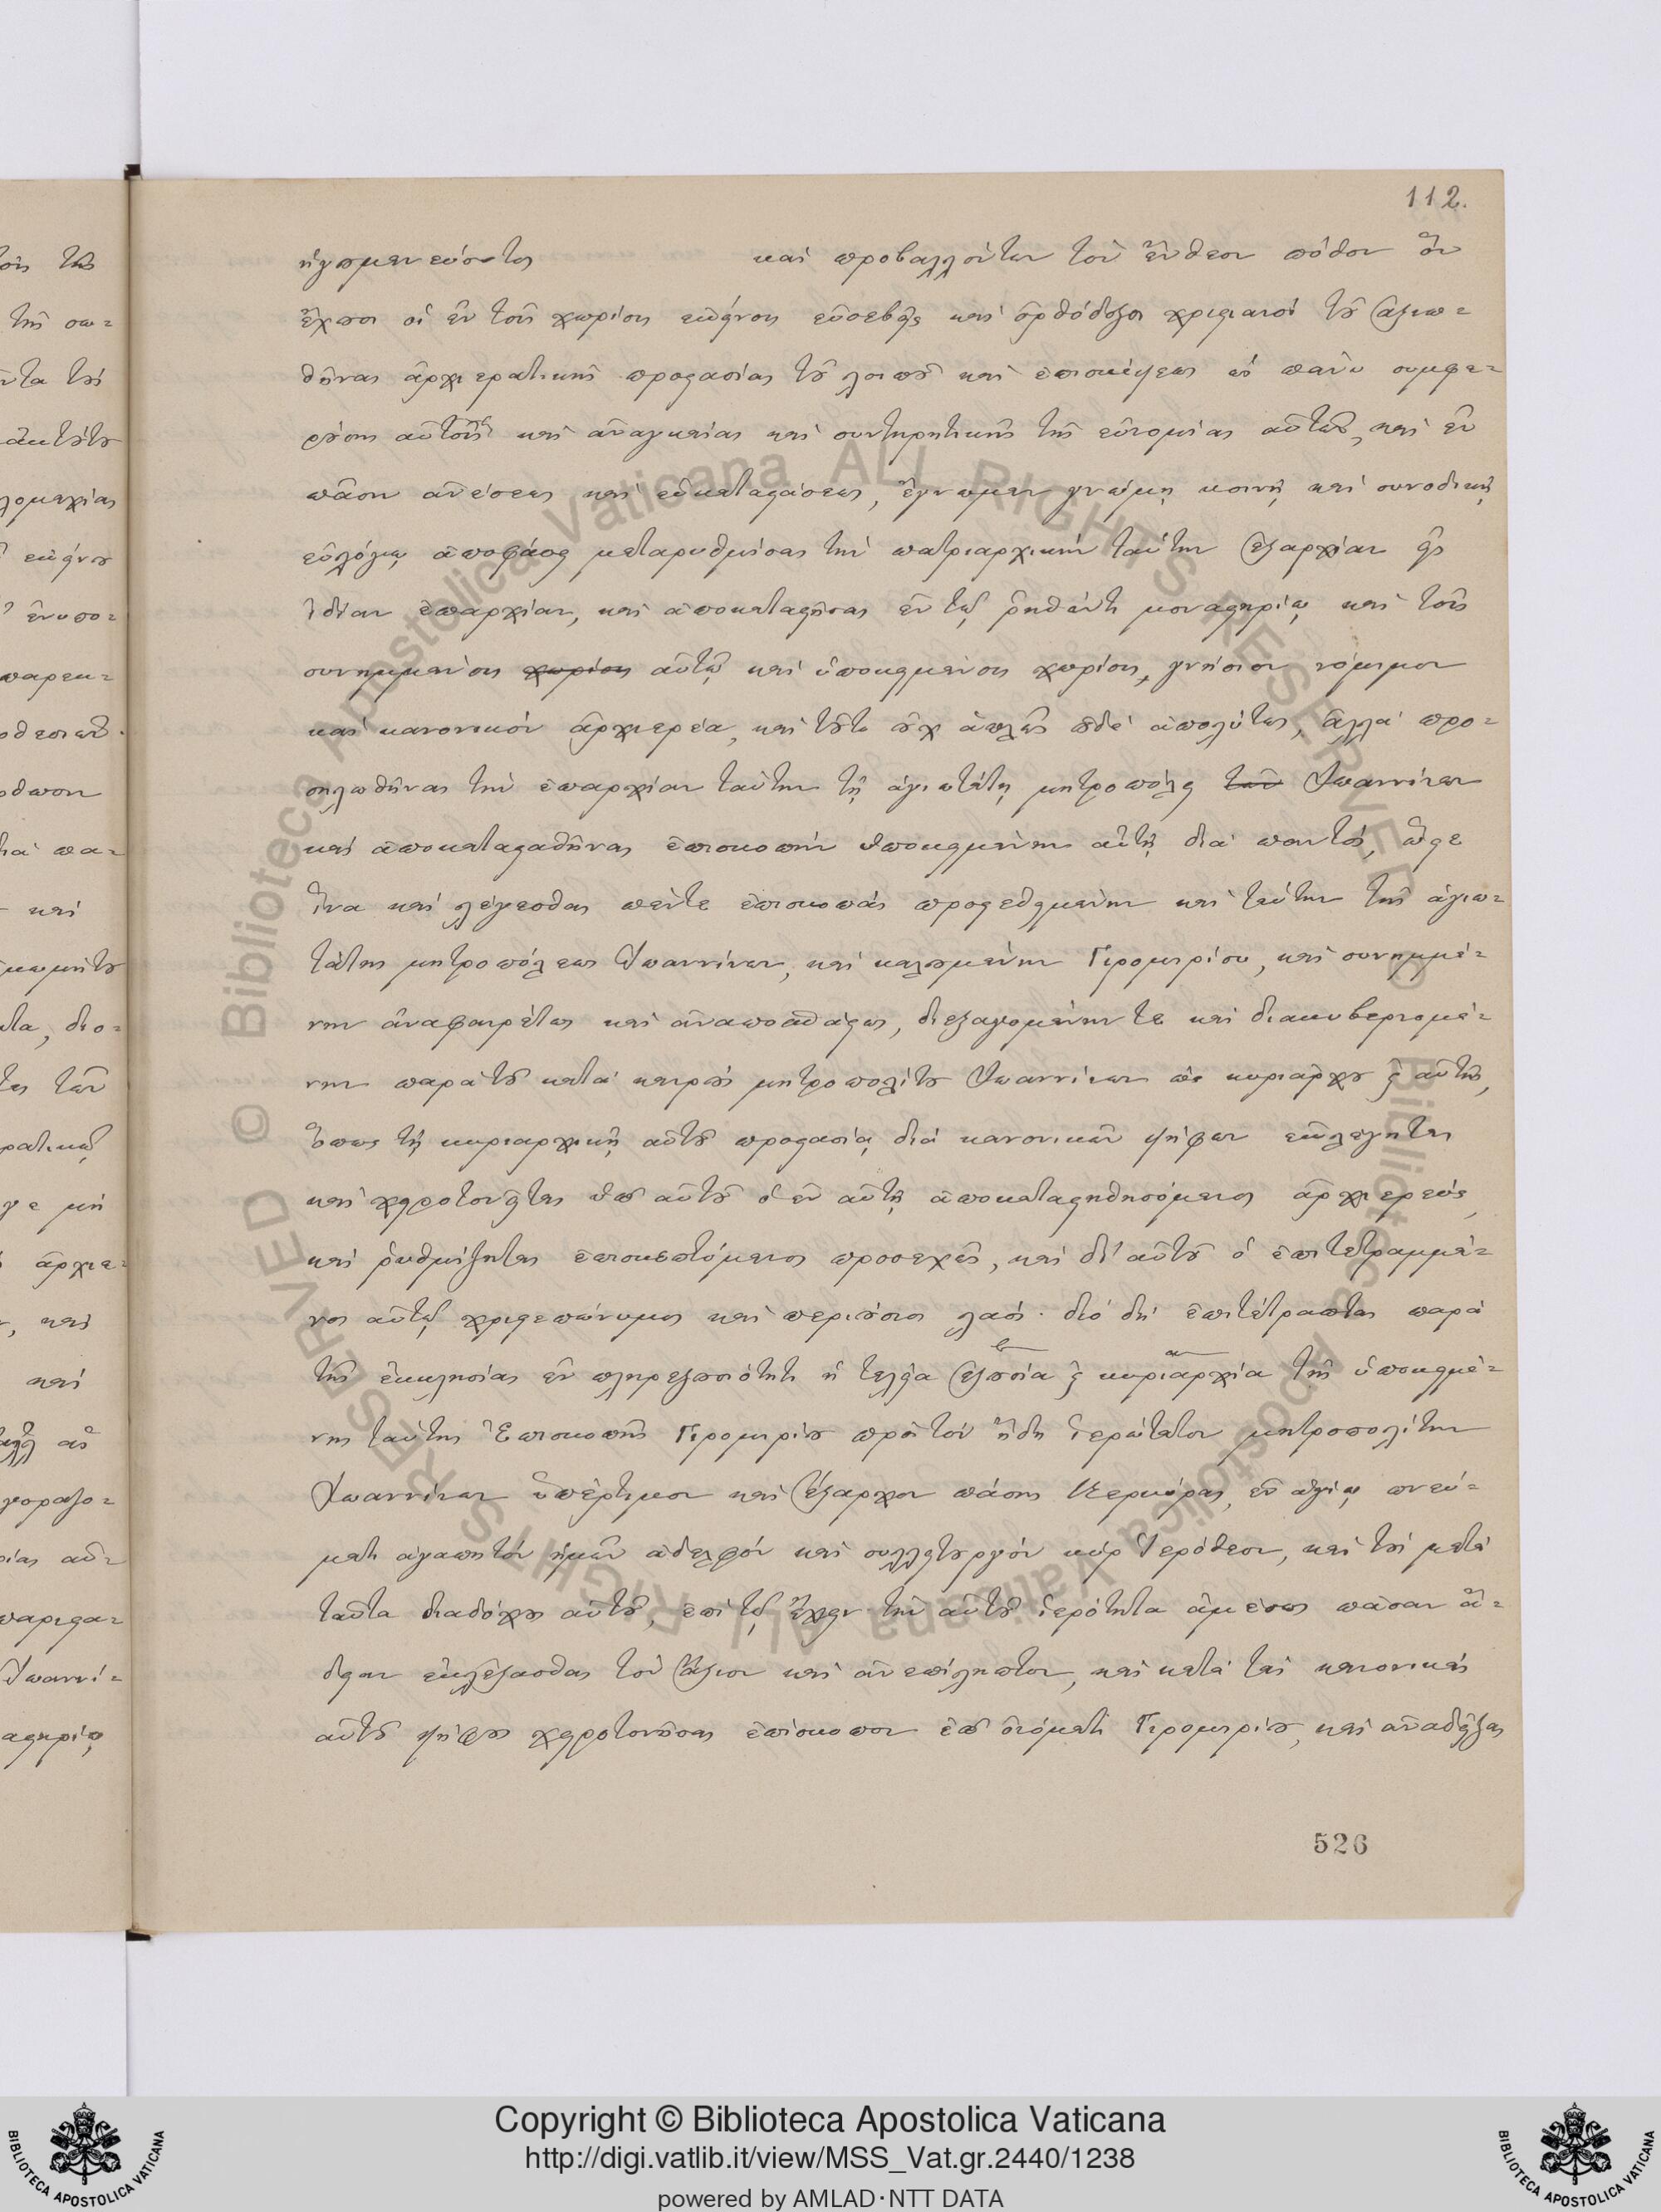 112.
ἡγουμενεύοντος καὶ προβαλλόντων τὸν ἔνθεον πόθον ὃν
ἔχουσι οἱ ἐν τοῖς χωρίοις ἐκείνοις εὐσεβεῖς καὶ ὀρθόδοξοι χριστιανοὶ τοῦ ἀξιω=
θῆναι ἀρχιερατικῆς προστασίας τοῦ λοιποῦ καὶ ἐπισκέψεως ὡς πάνυ συμφε=
ρούσης αὐτοῖς καὶ ἀναγκαίας καὶ συντηρητικῆς τῆς εὐνομίας αὐτῶν, καὶ ἐν
πᾶσιν ἀνέσεως καὶ εὐκαταστάσεως, ἔγνωμεν γνώμῃ κοινῇ καὶ συνοδικῇ
εὐλόγῳ ἀποφάσει μεταρυθμίσαι τὴν πατριαρχικὴν ταύτην ἐξαρχίαν εἰς
ἰδίαν ἐπαρχίαν, καὶ ἀποκαταστῆσαι ἐν τῷ ῥηθέντι μοναστηρίῳ καὶ τοῖς
συνημμένοις χωρίοις αὐτῷ καὶ ὑποκειμένοις χωρίοις, γνήσιον νόμιμον
καὶ κανονικὸν ἀρχιερέα, καὶ τοῦτο οὐχ ἁπλῶς οὐδὲ ἀπολύτως, ἀλλὰ προ=
σηλωθῆναι τὴν ἐπαρχίαν ταύτην τῇ ἁγιωτάτῃ μητροπόλει τῶν Ἰωαννίνων
καὶ ἀποκατασταθῆναι ἐπισκοπὴν ὑποκειμένην αὐτῇ διὰ παντός, ὥστε
ἵνα καὶ λέγεσθαι πέντε ἐπισκοπὰς προστεθειμένην καὶ ταύτην τῆς ἁγιω=
τάτης μητροπόλεως Ἰωαννίνων, καὶ καλουμένην Γηρομηρίου, καὶ συνημμέ=
νην ἀναφαιρέτως καὶ ἀναποσπάστως, διεξαγομένην τε καὶ διακυβερνομέ=
νην παρὰ τοῦ κατὰ καιροὺς μητροπολίτου Ἰωαννίνων ὡς κυριάρχου αὐτῆς,
ὅπως τῇ κυριαρχικῇ αὐτοῦ προστασίᾳ διὰ κανονικῶν ψήφων ἐκλέγηται
καὶ χειροτονεῖται ὑπ' αὐτοῦ ὁ ἐν αὐτῇ ἀποκαταστηθησόμενος ἀρχιερεύς,
καὶ ῥυθμίζηται ἐπισκεπτόμενος προσεχῶς, καὶ δι' αὐτοῦ ὁ ἐπιτετραμμέ=
νος αὐτῷ χριστεπώνυμος καὶ περιούσιος λαός· διὸ δὴ ἐπιτέτραπται παρὰ
τῆς ἐκκλησίας ἐν πληρεξουσιότητι ἡ τελεία ἐξουσία καὶ κυριαρχία τῆς ὑποκειμέ=
νης ταύτης Ἐπισκοπῆς Γηρομηρίου πρὸς τὸν ἤδη ἱερώτατον μητροπολίτην
Ἰωαννίνων ὑπέρτιμον καὶ ἔξαρχον πάσης Κερκύρας, ἐν ἁγίῳ πνεύ=
ματι ἀγαπητὸν ἡμῶν ἀδελφὸν καὶ συλλειτουργὸν κὺρ Ἱερόθεον, καὶ τοὺς μετὰ
ταῦτα διαδόχους αὐτοῦ, ἐπὶ τῷ ἔχειν τὴν αὐτοῦ ἱερότητα ἀμέσως πᾶσαν ἄ=
δειαν ἐκλέξασθαι τὸν ἄξιον καὶ ἀνεπίληπτον, καὶ κατὰ τὰς κανονικὰς
αὐτοῦ ψήφους χειροτονῆσαι ἐπίσκοπον ἐπ' ὀνόματι Γηρομηρίου, καὶ ἀναδεῖξαι
526
Copyright © Biblioteca Apostolica Vaticana
http://digi.vatlib.it/view/MSS_Vat.gr.2440/1238
powered by AMLAD·NTT DATA